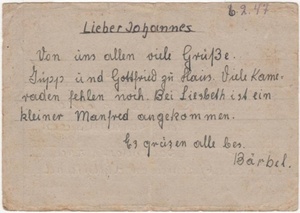 6.2.47
Lieber Johannes
Von uns allen viele Grüße.
Jupp und Gottfried zu Haus. Viele Kame-
raden fehlen noch. Bei Liesbeth ist ein
kleiner Manfred angekommen.
Es grüsen alle bes.
Bärbel.